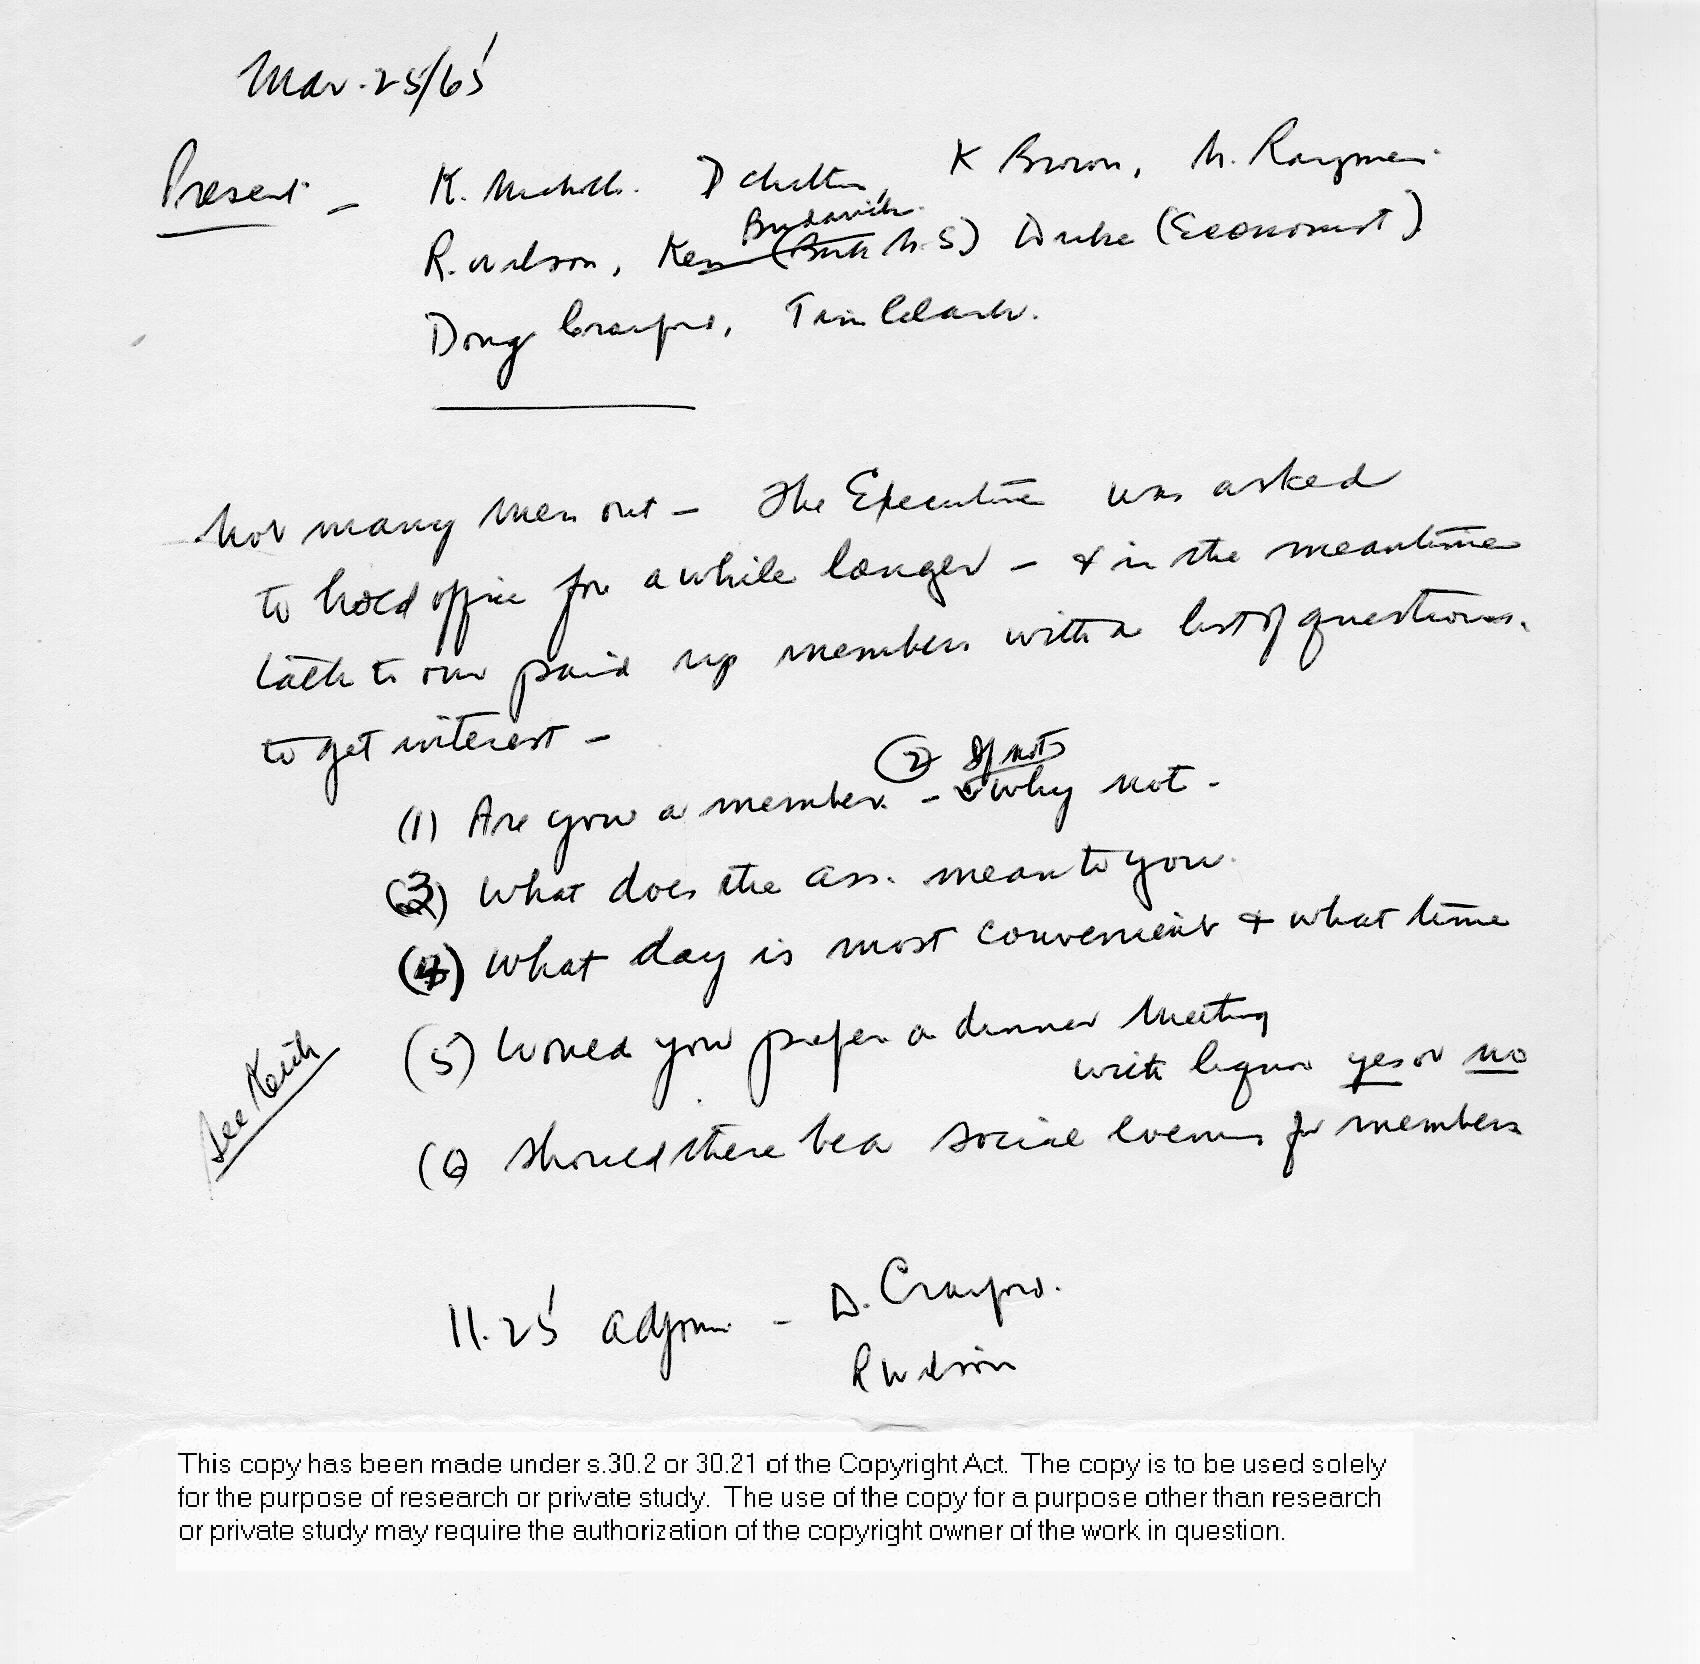 Mar. 25/65
Present - K. D K Brown,
R. Wilson, Ken (Economist)
Doug Crawford, Tim Clark.
Not many men out - The Executive was asked
to hold office for a while longer - & in the meantime
talk to our paid up members with a list of questions.
to get interest -
(2) If not
(1) Are you a member. - why not -
(3) What does the ass. mean to you.
(4) What day is most convenient & what time
(5) Would you prefer a dinner meeting
with liquor yes or no
See Keith
(6) Should there be a social evening for members
11.25 adjourn - D. Crawford.
R Wilson
This copy has been made under s.30.2 or 30.21 of the Copyright Act. The copy is to be used solely
for the purpose of research or private study. The use of the copy for a purpose other than research
or private study may require the authorization of the copyright owner of the work in question.